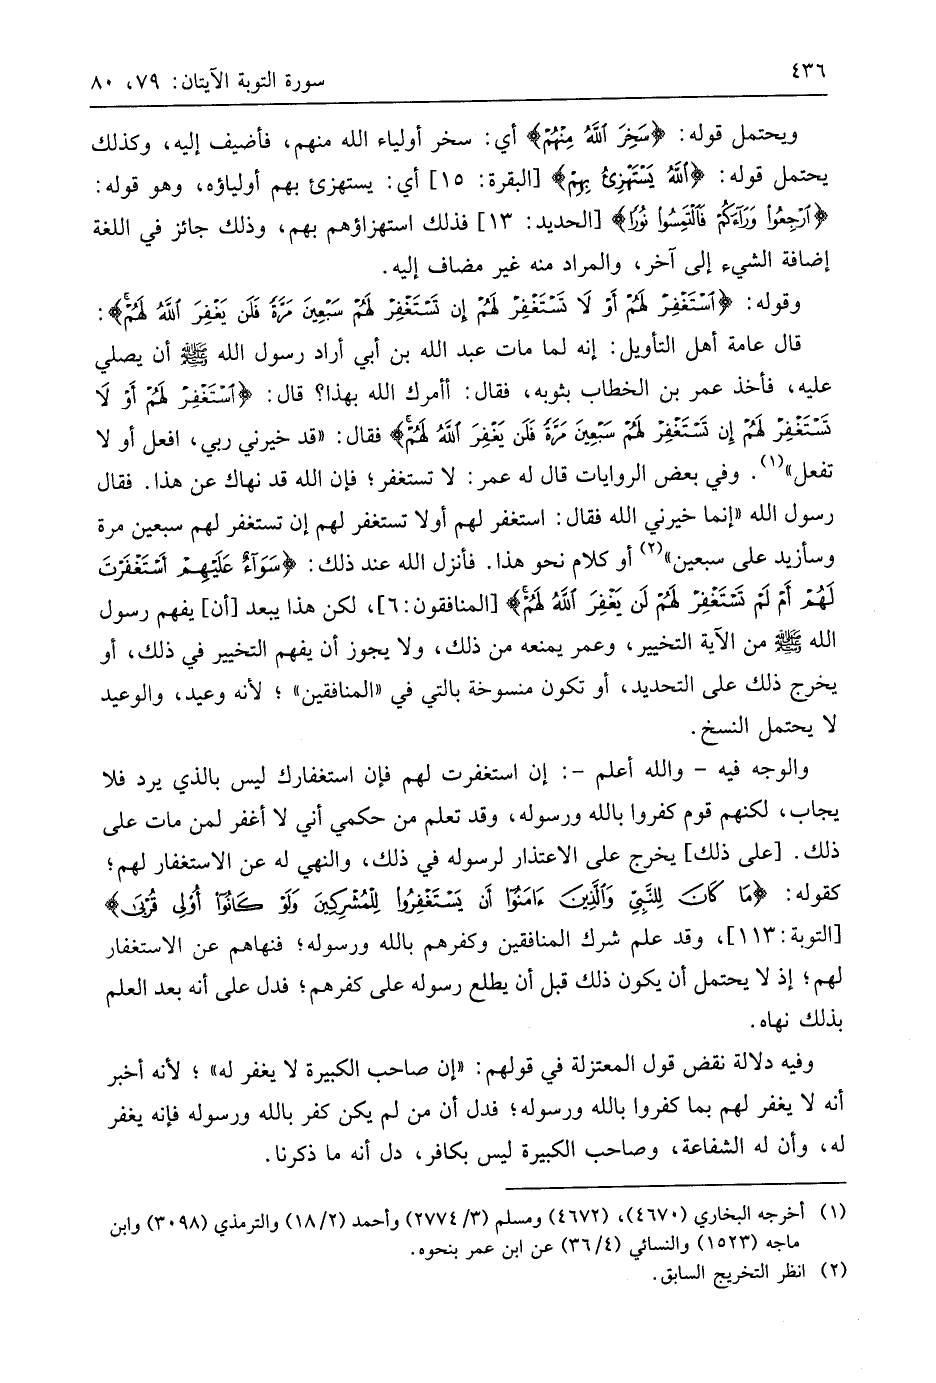 ٤٣٦
سورة التوبة الآيتان: ٧٩، ٨٠
ويحتمل قوله: ﴿سَخِرَ ٱللَّهُ مِنۡهُمۡ﴾ أي: سخر أولياء الله منهم، فأضيف إليه، وكذلك
يحتمل قوله: ﴿ٱللَّهُ يَسۡتَهۡزِئُ بِهِمۡ﴾ [البقرة: ١٥] أي: يستهزئ بهم أولياؤه، وهو قوله:
﴿ٱرۡجِعُواْ وَرَآءَكُمۡ فَٱلۡتَمِسُواْ نُورٗا﴾ [الحديد: ١٣] فذلك استهزاؤهم بهم، وذلك جائز في اللغة
إضافة الشيء إلى آخر، والمراد منه غير مضاف إليه.
وقوله: ﴿ٱسۡتَغۡفِرۡ لَهُمۡ أَوۡ لَا تَسۡتَغۡفِرۡ لَهُمۡ إِن تَسۡتَغۡفِرۡ لَهُمۡ سَبۡعِينَ مَرَّةٗ فَلَن يَغۡفِرَ ٱللَّهُ لَهُمۡۚ﴾:
قال عامة أهل التأويل: إنه لما مات عبد الله بن أبي أراد رسول الله ﷺ أن يصلي
عليه، فأخذ عمر بن الخطاب بثوبه، فقال: أأمرك الله بهذا؟ قال: ﴿ٱسۡتَغۡفِرۡ لَهُمۡ أَوۡ لَا
تَسۡتَغۡفِرۡ لَهُمۡ إِن تَسۡتَغۡفِرۡ لَهُمۡ سَبۡعِينَ مَرَّةٗ فَلَن يَغۡفِرَ ٱللَّهُ لَهُمۡۚ﴾ فقال: «قد خيرني ربي، افعل أو لا
تفعل»(١). وفي بعض الروايات قال له عمر: لا تستغفر؛ فإن الله قد نهاك عن هذا. فقال
رسول الله «إنما خيرني الله فقال: استغفر لهم أولا تستغفر لهم إن تستغفر لهم سبعين مرة
وسأزيد على سبعين»(٢) أو كلام نحو هذا. فأنزل الله عند ذلك: ﴿سَوَآءٌ عَلَيۡهِمۡ أَسۡتَغۡفَرۡتَ
لَهُمۡ أَمۡ لَمۡ تَسۡتَغۡفِرۡ لَهُمۡ لَن يَغۡفِرَ ٱللَّهُ لَهُمۡۚ﴾ [المنافقون:٦]، لكن هذا يبعد [أن] يفهم رسول
الله ﷺ من الآية التخيير، وعمر يمنعه من ذلك، ولا يجوز أن يفهم التخيير في ذلك، أو
يخرج ذلك على التحديد، أو تكون منسوخة بالتي في «المنافقين» ؛ لأنه وعيد، والوعيد
لا يحتمل النسخ.
والوجه فيه – والله أعلم –: إن استغفرت لهم فإن استغفارك ليس بالذي يرد فلا
يجاب، لكنهم قوم كفروا بالله ورسوله، وقد تعلم من حكمي أني لا أغفر لمن مات على
ذلك. [على ذلك] يخرج على الاعتذار لرسوله في ذلك، والنهي له عن الاستغفار لهم؛
كقوله: ﴿مَا كَانَ لِلنَّبِيِّ وَٱلَّذِينَ ءَامَنُوٓاْ أَن يَسۡتَغۡفِرُواْ لِلۡمُشۡرِكِينَ وَلَوۡ كَانُوٓاْ أُوْلِي قُرۡبَىٰ﴾
[التوبة:١١٣]، وقد علم شرك المنافقين وكفرهم بالله ورسوله؛ فنهاهم عن الاستغفار
لهم؛ إذ لا يحتمل أن يكون ذلك قبل أن يطلع رسوله على كفرهم؛ فدل على أنه بعد العلم
بذلك نهاه.
وفيه دلالة نقض قول المعتزلة في قولهم: «إن صاحب الكبيرة لا يغفر له» ؛ لأنه أخبر
أنه لا يغفر لهم بما كفروا بالله ورسوله؛ فدل أن من لم يكن كفر بالله ورسوله فإنه يغفر
له، وأن له الشفاعة، وصاحب الكبيرة ليس بكافر، دل أنه ما ذكرنا.
(١) أخرجه البخاري (٤٦٧٠)، (٤٦٧٢) ومسلم (٣/ ٢٧٧٤) وأحمد (٢/ ١٨) والترمذي (٣٠٩٨) وابن
ماجه (١٥٢٣) والنسائي (٤/ ٣٦) عن ابن عمر بنحوه.
(٢) انظر التخريج السابق.